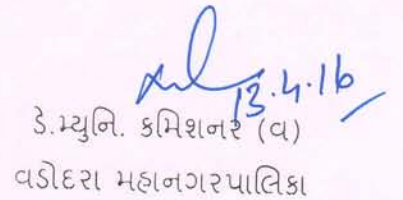 13.4.16
ડે.મ્યુનિ. કમિશનર (વ)
વડોદરા મહાનગરપાલિકા